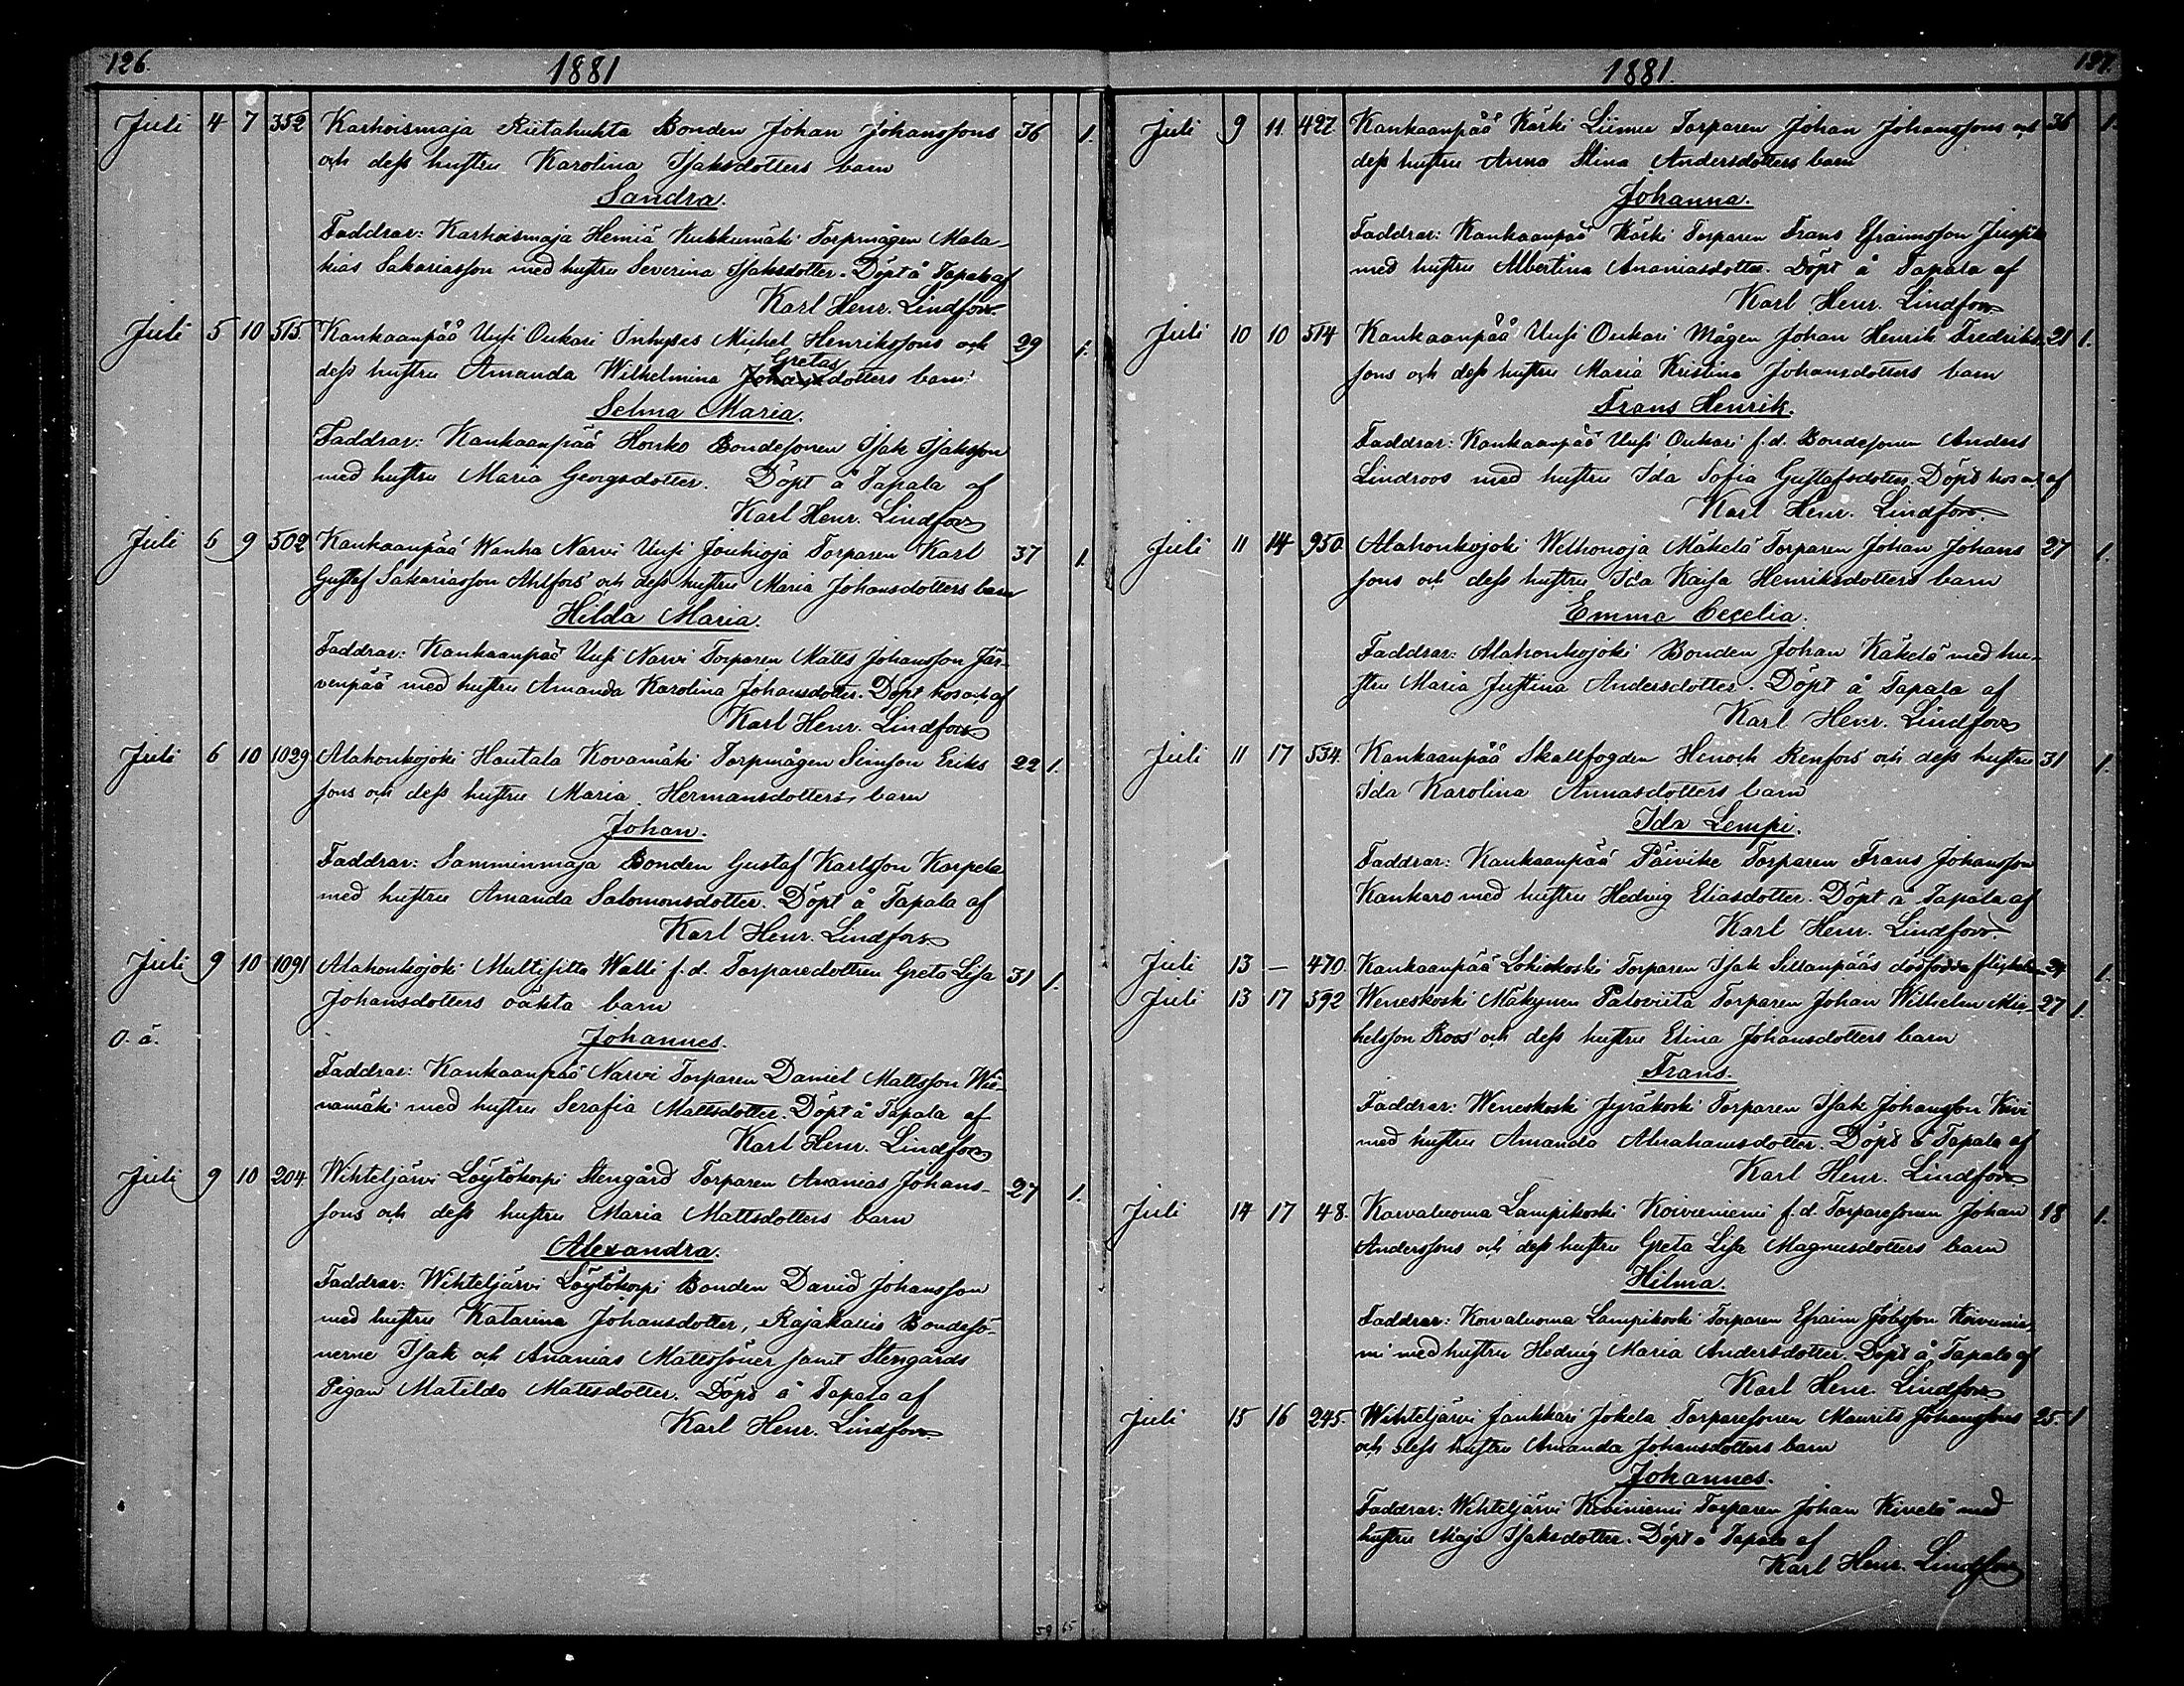 126.
1881
Juli 4 7 352 Karhoismaja Riitahuhta Bonden Johan Johanssons 36 1.
och dess hustru Karolina Isaksdotters barn
Sandra.
Faddrar: Karhoismaja Hemiä Kukkumäki Torpmågen Mala-
kias Sakariasson med hustru Severina Isaksdotter. Döpt å Tapala af
Karl Henr. Lindfors
Juli 5 10 515. Kankaanpää Uusi Oukari Inhyses Michel Henrikssons och 29 1.
Gretas
dess hustru Amanda Wilhelmina Johansdotters barn
Selma Maria.
Faddrar: Kankaanpää Honko Bondesonen Isak Isaksson
med hustru Maria Georgsdotter. Döpt å Tapala af
Karl Henr. Lindfors
Juli 6 9 502 Kankaanpää Wanha Narvi Uusi Jouhioja Torparen Karl 37 1.
Gustaf Sakariasson Ahlfors och dess hustru Maria Johansdotters barn
Hilda Maria.
Faddrar: Kankaanpää Uusi Narvi Torparen Matts Johansson Jär-
venpää med hustru Amanda Karolina Johansdotter. Döpt hos och af
Karl Henr. Lindfors
Juli 6 10 1029 Alahonkojoki Hautala Kovamäki Torpmågen Simson Eriks 22 1.
sons och dess hustru Maria Hermansdotters barn
Johan.
Faddrar: Samminmaja Bonden Gustaf Karlsson Karpela
med hustru Amanda Salomonsdotter. Döpt å Tapala af
Karl Henr. Lindfors
Juli 9 10 1091 Alahonkojoki Multisilta Walli f.d. Torparedottren Greta Lisa 31 1.
Johansdotters oäkta barn
O. ä.
Johannes.
Faddrar: Kankaanpää Narvi Torparen Daniel Mattsson Wii-
namäki med hustru Serafia Mattsdotter. Döpt å Tapala af
Karl Henr. Lindfors
Juli 9 10 204 Wihteljärvi Löytökorpi Stengård Torparen Ananias Johans- 27 1.
sons och dess hustru Maria Mattsdotters barn
Alexandra.
Faddrar: Wihteljärvi Löytökorpi Bonden David Johansson
med hustru Katarina Johansdotter, Rajakallio Bondesö-
nerne Isak och Ananias Mattssöner samt Stengårds
Pigan Matilda Mattsdotter. Döpt å Tapala af
Karl Henr. Lindfors.
59 65
127.
1881.
Juli 9 11. 422 Kankaanpää Kärki Liimu Torparen Johan Johanssons och 36 1.
dess hustru Anna Stina Andersdotters barn
Johanna.
Faddrar: Kankaanpää Kärki Torparen Frans Efraimsson
med hustru Albertina Ananiasdotter. Döpt å Tapala af
Karl Henr. Lindfors
Juli 10 10 514 Kankaanpää Uusi Oukari Mågen Johan Henrik Fredriks 21 1.
sons och dess hustru Maria Kristina Johansdotters barn
Frans Henrik.
Faddrar: Kankaanpää Uusi Oukari f.d. Bondesonen Anders
Lindroos med hustru Ida Sofia Gustafsdotter. Döpt hos och af
Karl Henr. Lindfors.
Juli 11 14 950. Alahonkojoki Welhonoja Mäkelä Torparen Johan Johans 27 1.
sons och dess hustru Ida Kaisa Henriksdotters barn
Emma Cecelia.
Faddrar: Alahonkojoki Bonden Johan Käkelä med hu-
stru Maria Justina Andersdotter. Döpt å Tapala af
Karl Henr. Lindfors
Juli 11 17 534. Kankaanpää Skallfogden Henoch Renfors och dess hustru 31 1.
Ida Karolina Annasdotters barn
Ida Lempi.
Faddrar: Kankaanpää Päivike Torparen Frans Johansson
Kankaro med hustru Hedvig Eliasdotter. Döpt å Tapala af
Karl Henr. Lindfors.
Juli 13 — 470. Kankaanpää Lohikoski Torparen Isak Sillanpääs dödfödda 24 1.
Juli 13 17 592 Weneskoski Mäkynen Paloviita Torparen Johan Wilhelm Mic- 27 1.
helsson Roos och dess hustru Elina Johansdotters barn
Frans.
Faddrar: Weneskoski Jyräkoski Torparen Isak Johansson Kivi
med hustru Amanda Abrahamsdotter. Döpt å Tapala af
Karl Henr. Lindfors
Juli 14 17 48. Karvaluoma Lampikoski Koivuniemi f.d. Torparesonen Johan 18 1.
Anderssons och dess hustru Greta Lisa Magnusdotters barn
Hilma.
Faddrar: Karvaluoma Lampikoski Torparen Efraim Jobsson Koivunie-
mi med hustru Hedvig Maria Andersdotter. Döpt å Tapala af
Karl Henr. Lindfors
Juli 15 16 245. Wihteljärvi Jankkari Jokela Torparesonen Maurits Johanssons 25. 1
och dess hustru Amanda Johansdotters barn
Johannes.
Faddrar: Wihteljärvi Kiviniemi Torparen Johan Kivelä med
hustru Maja Isaksdotter. Döpt å Tapala af
Karl Henr. Lindfors